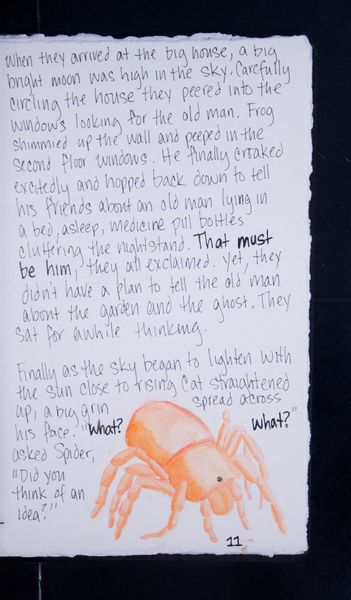 When they arrived at the big house, a big
bright moon was high in the sky. Carefully
circling the house they peered into the
windows looking for the old man. Frog
shimmied up the wall and peeped in the
second floor windows. He finally croaked
excitedly and hopped back down to tell
his friends about an old man lying in
a bed, asleep, medicine pill bottles
cluttering the nightstand. That must
be him, they all exclaimed. Yet, they
didn't have a plan to tell the old man
about the garden and the ghost. They
sat for awhile thinking.
Finally as the sky began to lighten with
the sun close to rising Cat straightened
up, a big grin spread across
his face. "What? What?"
asked Spider,
"Did you
think of an
idea?"
11